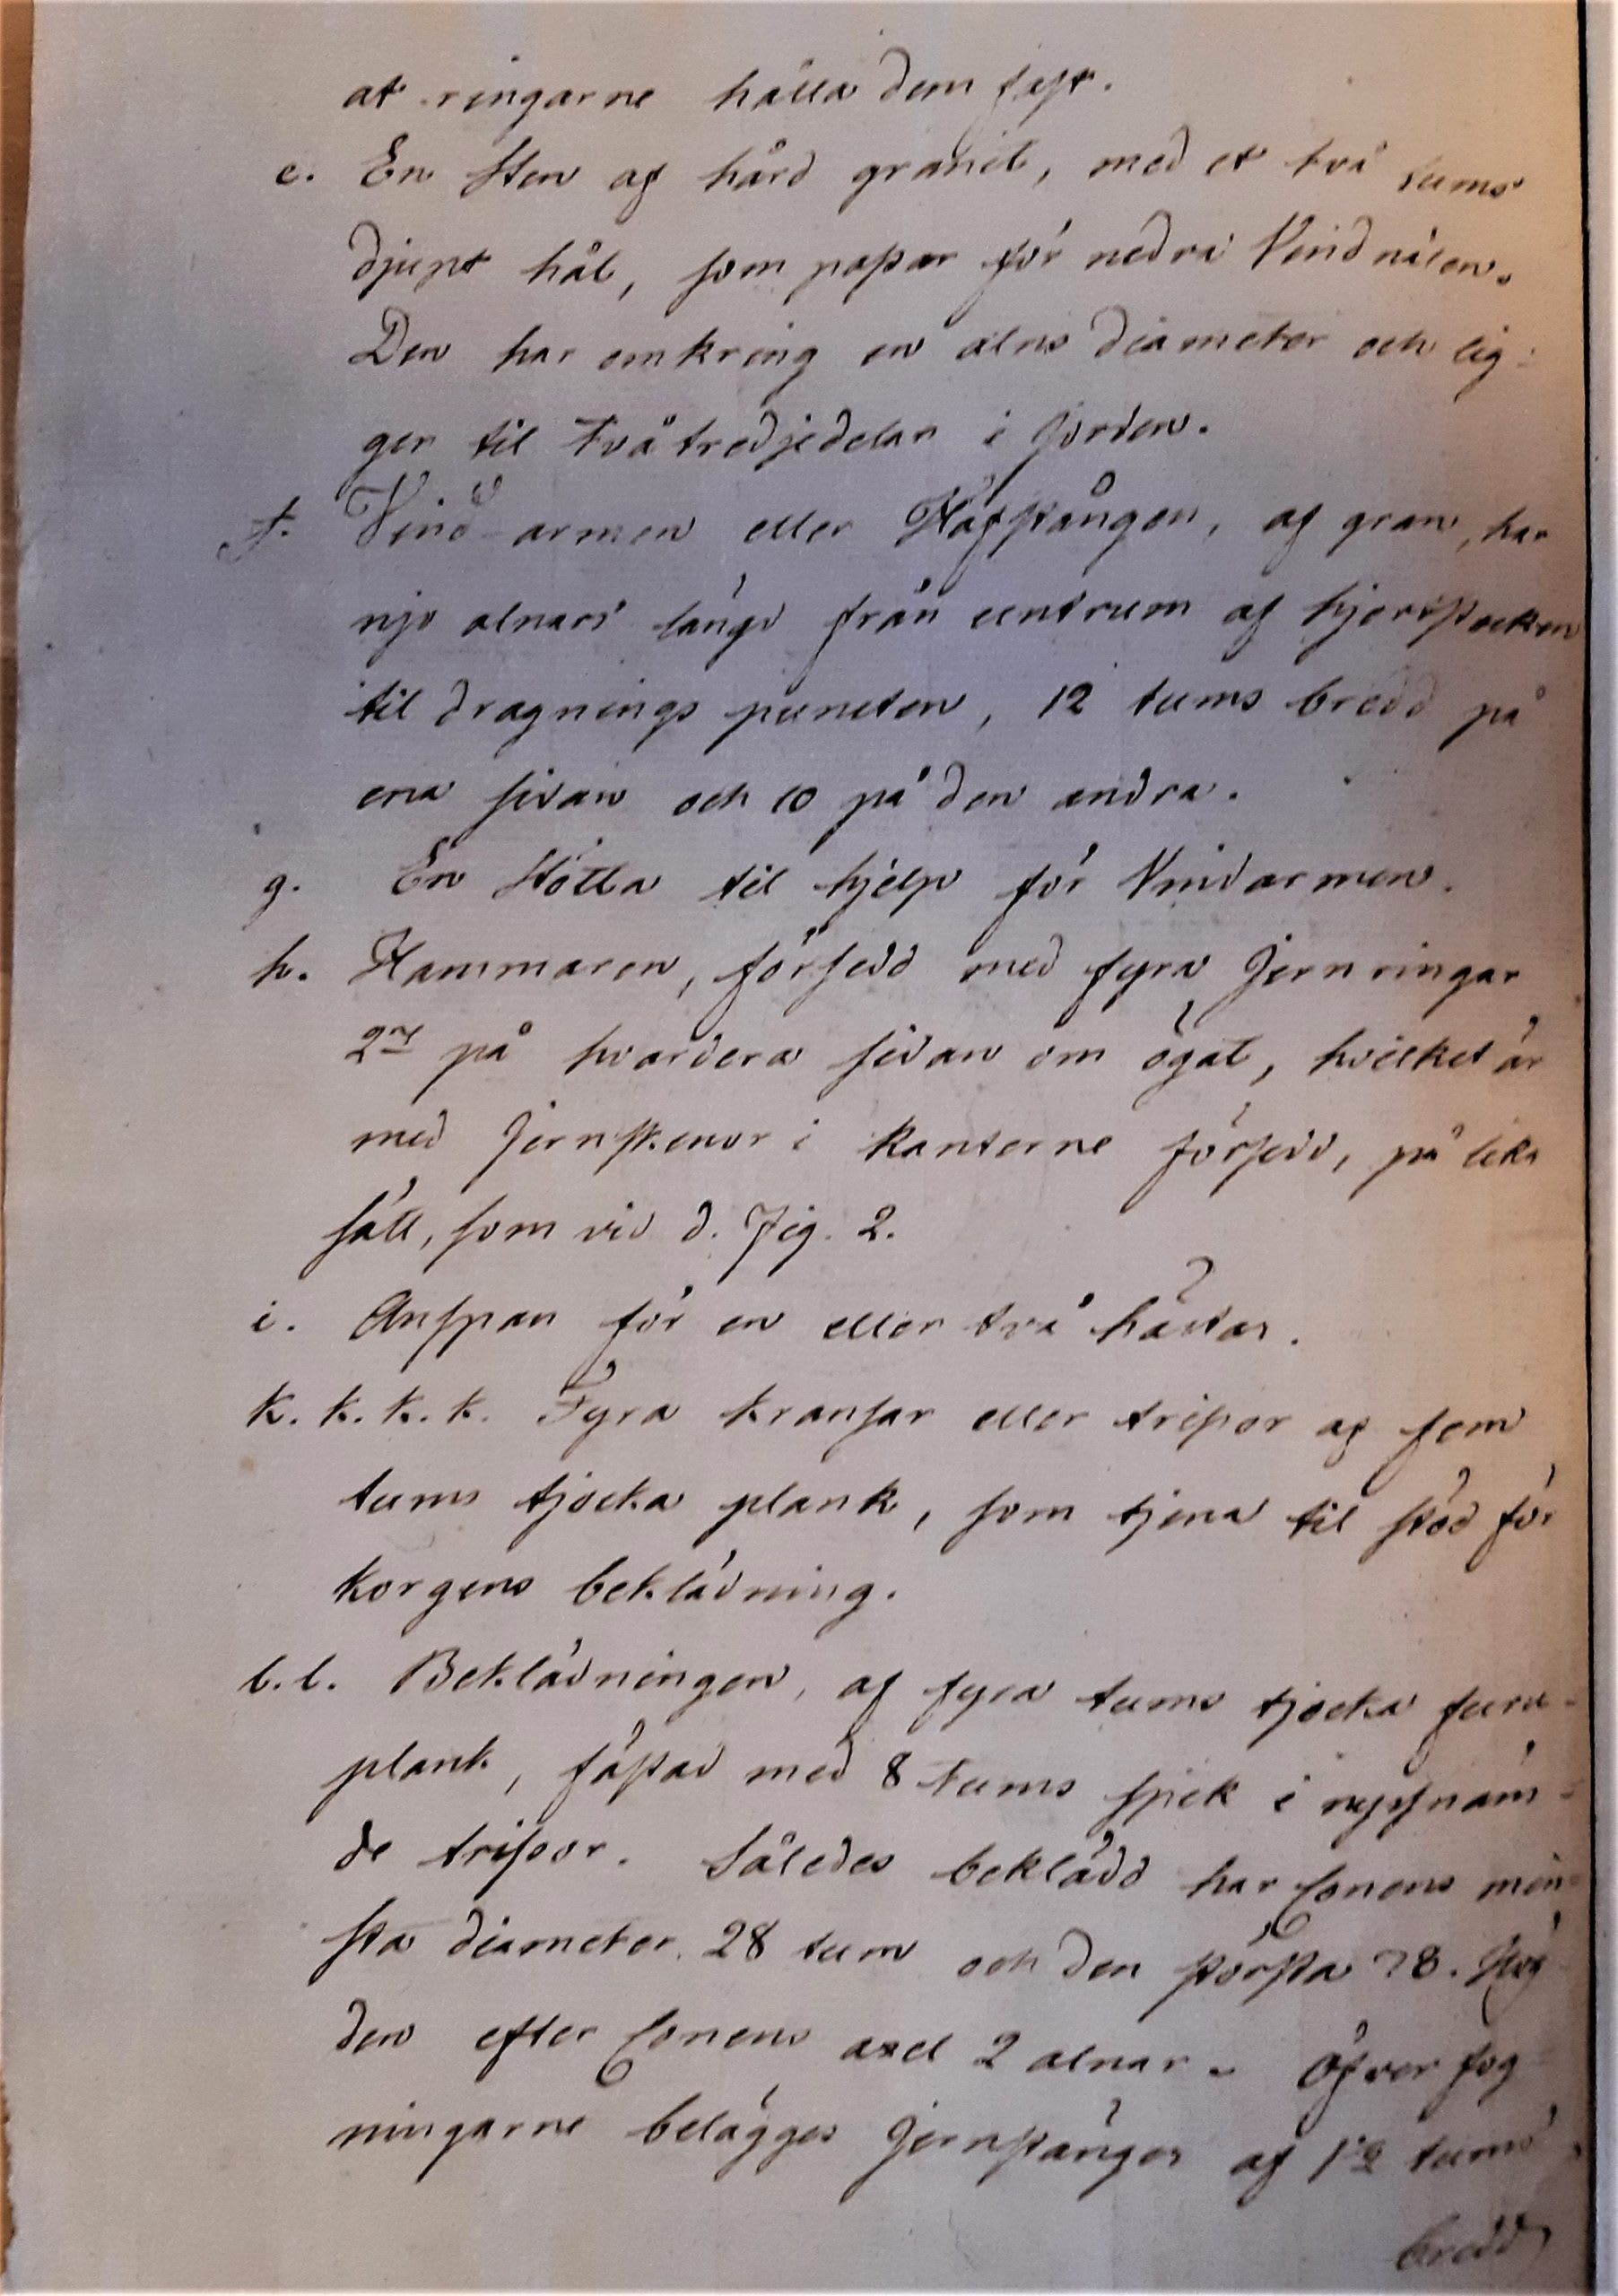 at ringarne hålla dem fast.
e. En Sten af hård granit, med et två tums
djupt hål, som passar för nedra Vindnålen.
Den har omkring en alns diameter och lig-
ger til Två tredjedelar i Jorden.
f. Vind-armen eller Häfstången, af gran, har
njo alnars längd från centrum af hjertstocken
til dragnings puncten, 12 tums bredd på
ena sidan och 10 på den andra.
g. En Stötta til hjelp för Vindarmen.
h. Hammaren, försedd med fyra Jernringar
2 på hvardera sidan om ögat, hvilket är
med Jernskenor i kanterne försedd, på lika
sätt, som vid d. Fig. 2.
i. Anspan för en eller två hästar.
k. k. k. k. Fyra kransar eller trissor af fem
tums tjocka plank, som tjena til stöd för
korgens beklädning.
l. l. Beklädningen, af fyra tums tjocka furu-
plank, fästad med 8 Tums spik i nyssnäm-
de trissor. Således beklädd har Conens min-
sta diameter 28 tum och den största 78. Höj
den efter Conens axel 2 alnar. Öfver fog-
ningarne belägges Jernstänger af tums
bredd